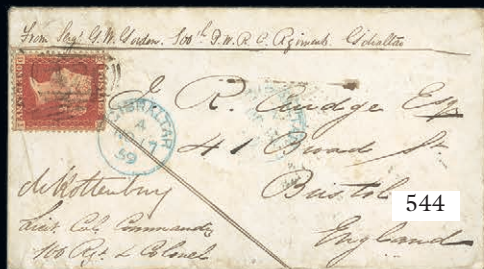 From Sergt G. W. Gordon. 100th P.W.R.C. Regiment. Gibraltar
POSTAGE
ONE PENNY
GIBRALTAR
A
17
59
J. R. Esq
41 Broad St
Bristol
England
de Rottenburg
Lieut Col. Commandg
100 Regt & Colonel
544